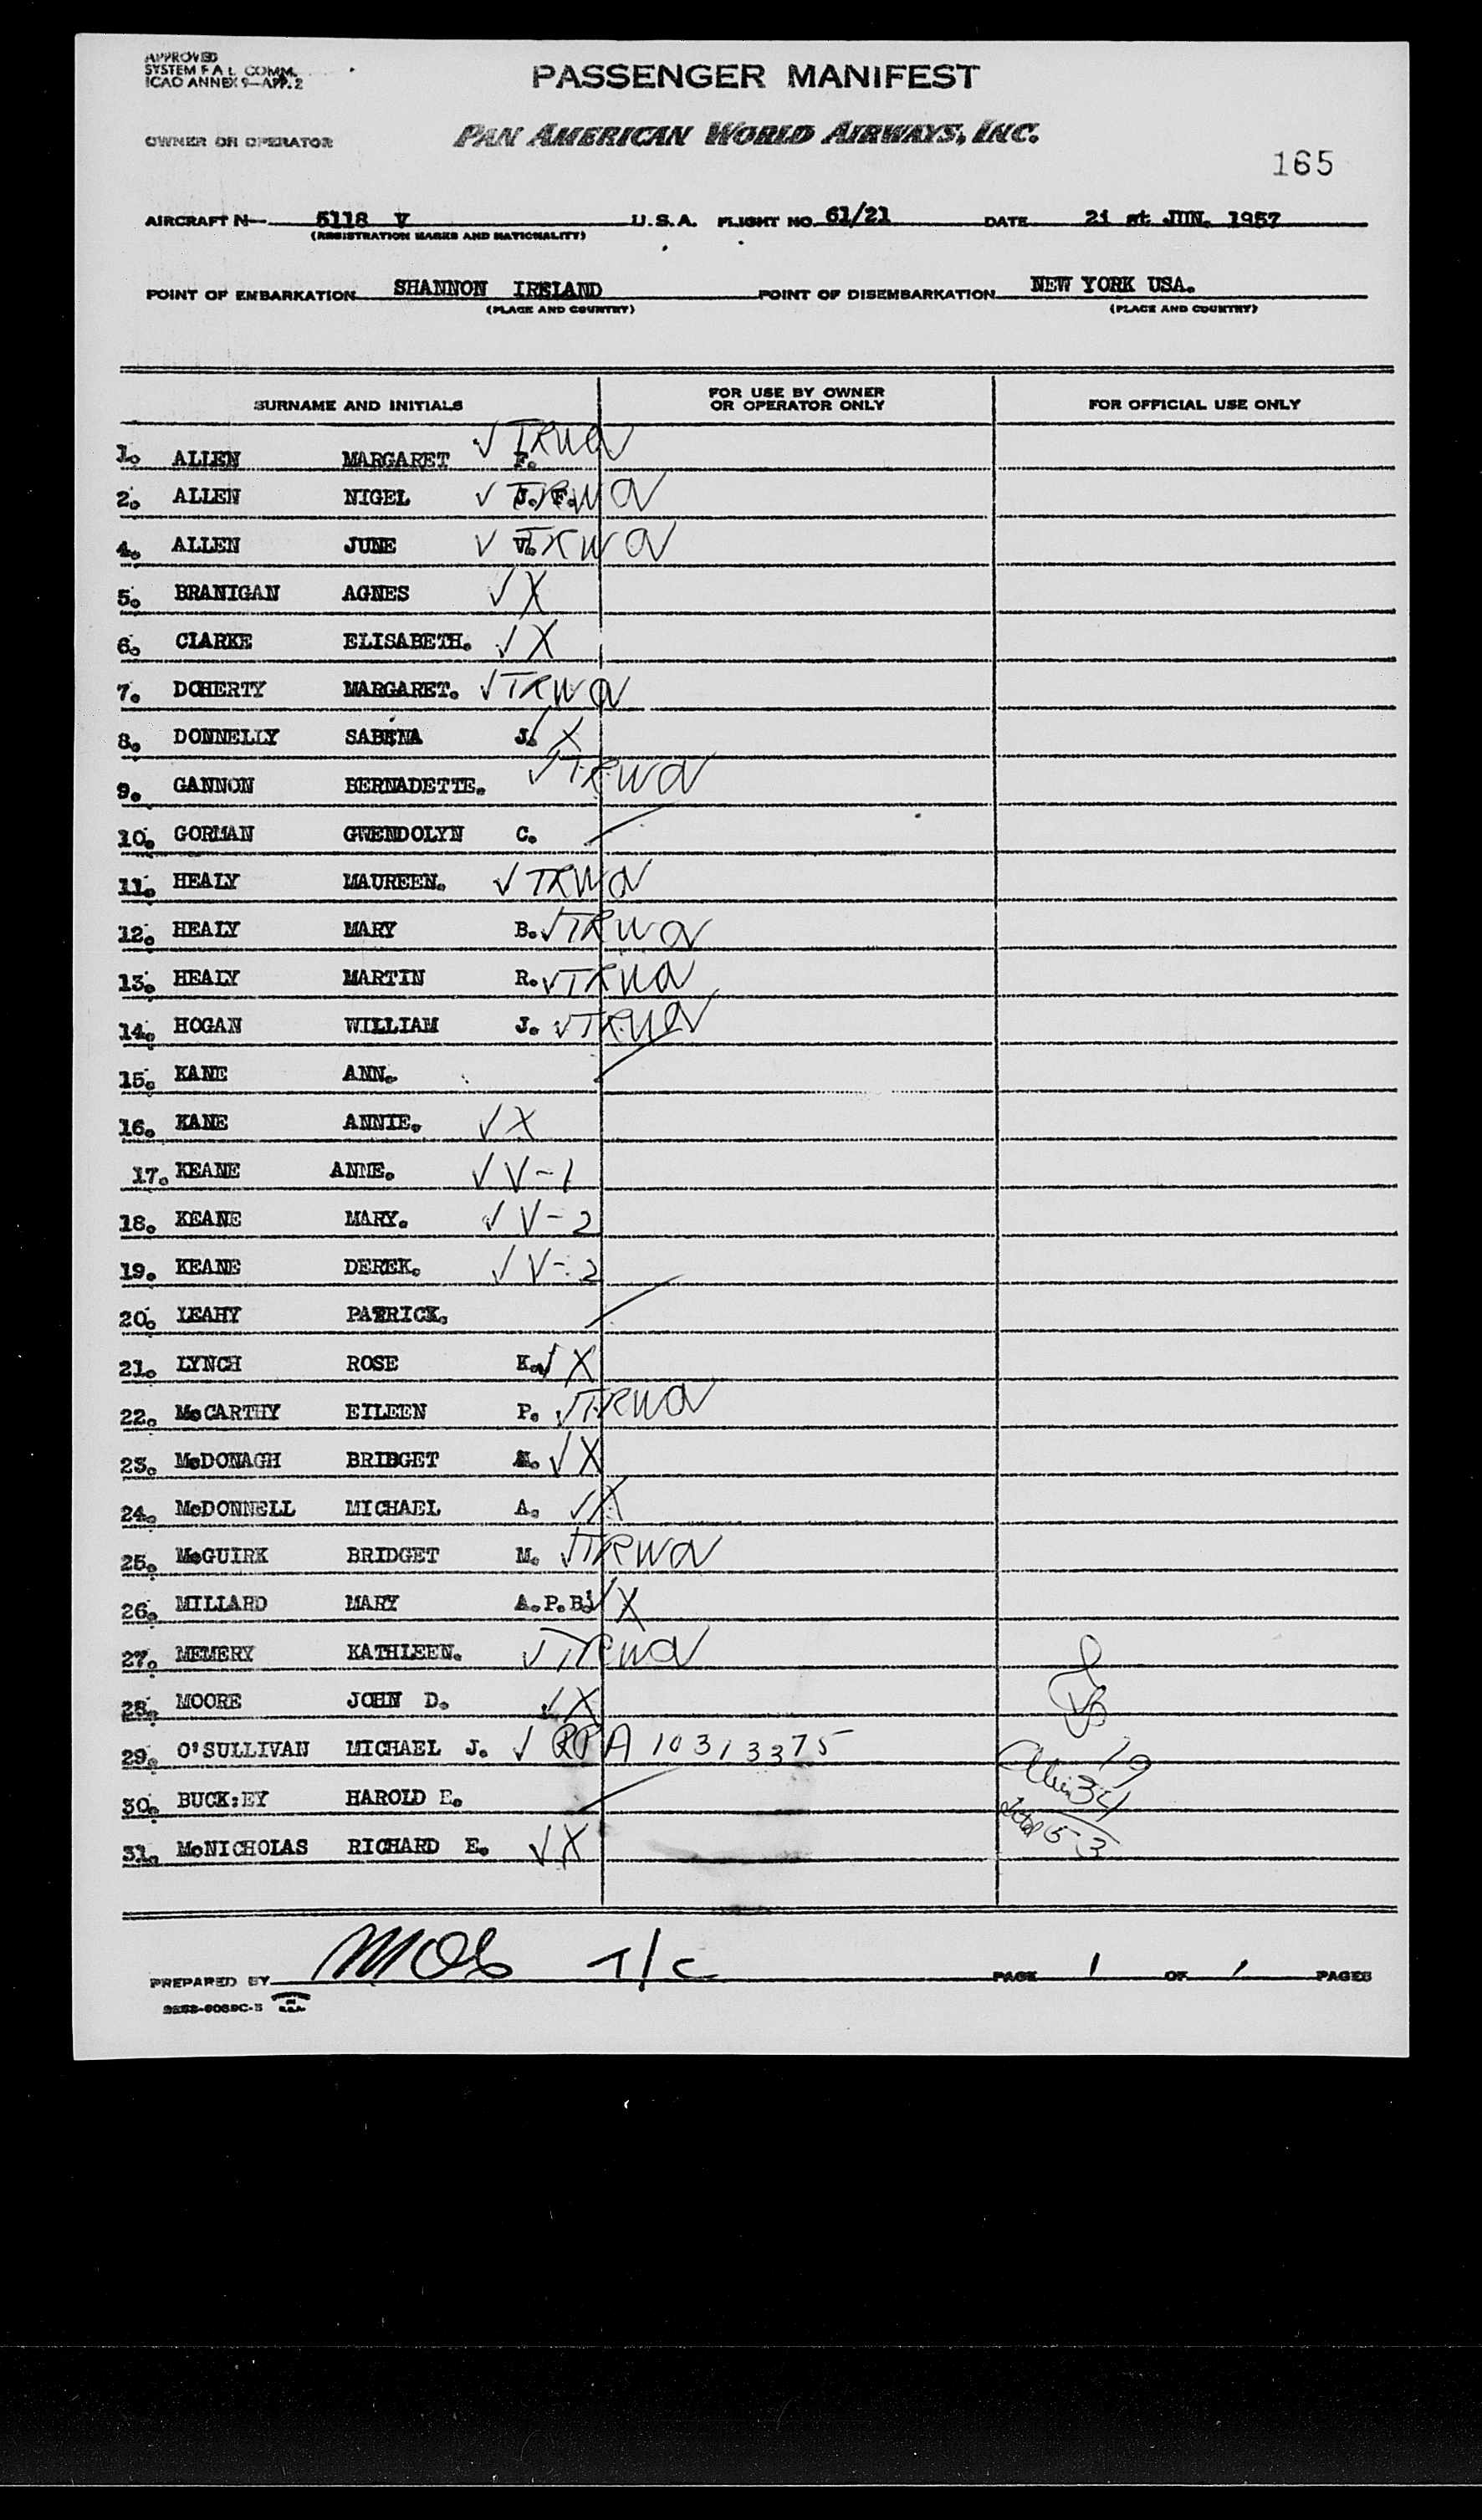 APPROVED
SYSTEM F A L COMM.
ICAO ANNEX 9—APP. 2
PASSENGER MANIFEST
OWNER OR OPERATOR PAN AMERICAN WORLD AIRWAYS, INC.
165
AIRCRAFT N— 5118 V U.S.A. FLIGHT NO. 61/21 DATE 21 st JUN. 1957
(REGISTRATION MARKS AND NATIONALITY)
POINT OF EMBARKATION SHANNON IRELAND POINT OF DISEMBARKATION NEW YORK USA.
(PLACE AND COUNTRY) (PLACE AND COUNTRY)
SURNAME AND INITIALS FOR USE BY OWNER OR OPERATOR ONLY FOR OFFICIAL USE ONLY
1. ALLEN MARGARET F. √ TRWOV
2. ALLEN NIGEL J. F. √ TRWOV
4. ALLEN JUNE V. √ TRWOV
5. BRANIGAN AGNES √ X
6. CLARKE ELISABETH. √ X
7. DOHERTY MARGARET. √ TRWOV
8. DONNELLY SABINA J. √ X
9. GANNON BERNADETTE. √ TRWOV
10. GORMAN GWENDOLYN C.
11. HEALY MAUREEN. √ TRWOV
12. HEALY MARY B. √ TRWOV
13. HEALY MARTIN R. √ TRWOV
14. HOGAN WILLIAM J. √ TRWOV
15. KANE ANN.
16. KANE ANNIE. √ X
17. KEANE ANNE. √ V-1
18. KEANE MARY. √ V-2
19. KEANE DEREK. √ V-2
20. LEAHY PATRICK.
21. LYNCH ROSE K. √ X
22. McCARTHY EILEEN P. √ TRWOV
23. McDONAGH BRIDGET √ X
24. McDONNELL MICHAEL A. √ X
25. McGUIRK BRIDGET M. √ TRWOV
26. MILLARD MARY A.P.B. √ X
27. MEMERY KATHLEEN. √ TRWOV
28. MOORE JOHN D. √ X
29. O'SULLIVAN MICHAEL J. √ RPA 10313375 19
30. BUCK:EY HAROLD E. 34
31. McNICHOLAS RICHARD E. √ X 53
PREPARED BY T/C PAGE 1 OF 1 PAGES